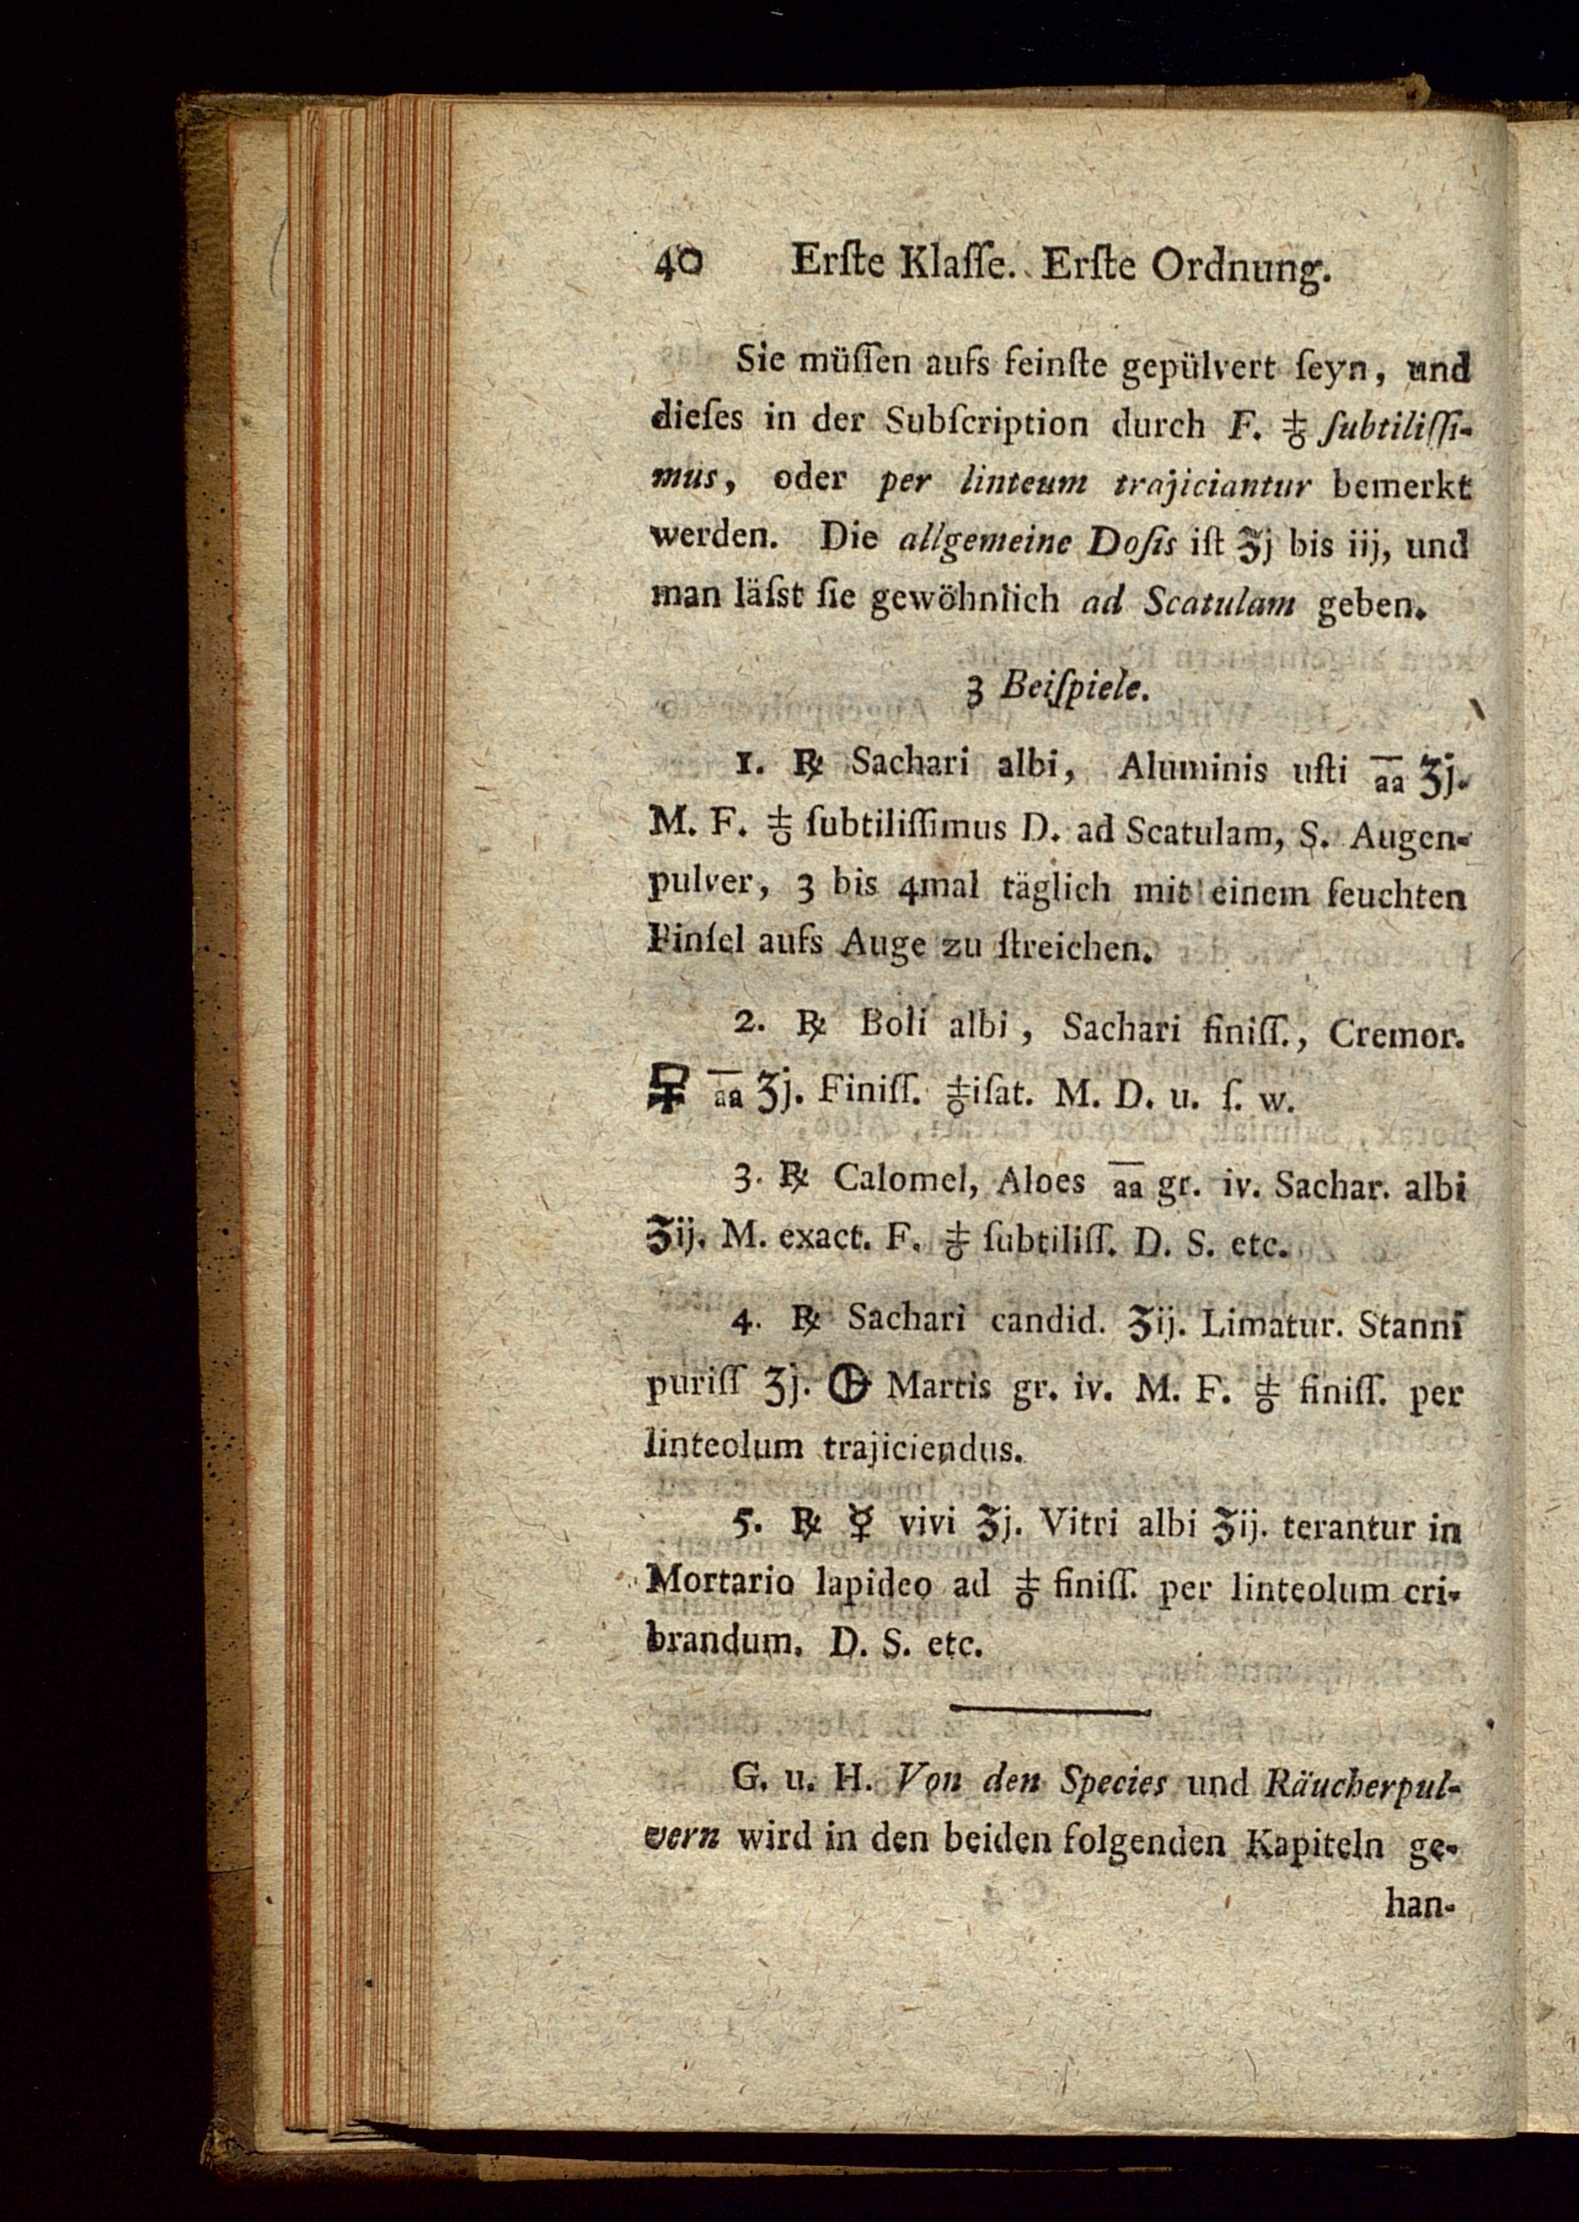 40 Erſte Klaſſe. Erſte Ordnung.
Sie müſſen aufs feinſte gepülvert ſeyn, und
dieſes in der Subſcription durch F. 🜋 ſubtiliſſi-
mus, oder per linteum trajiciantur bemerkt
werden. Die allgemeine Doſis iſt ℥j bis iij, und
man läſst ſie gewöhnlich ad Scatulam geben.
3 Beiſpiele.
1. ℞ Sachari albi, Aluminis uſti a͞a ʒj.
M. F. 🜋 ſubtiliſſimus D. ad Scatulam, S. Augen-
pulver, 3 bis 4mal täglich mit einem feuchten
Pinſel aufs Auge zu ſtreichen.
2. ℞ Boli albi, Sachari finiſſ., Cremor.
🜿 a͞a ʒj. Finiſſ. 🜋iſat. M. D. u. ſ. w.
3. ℞ Calomel, Aloes a͞a gr. iv. Sachar. albi
℥ij. M. exact. F. 🜋 ſubtiliſſ. D. S. etc.
4. ℞ Sachari candid. ℥ij. Limatur. Stanni
puriſſ ʒj. 🜨 Martis gr. iv. M. F. 🜋 finiſſ. per
linteolum trajiciendus.
5. ℞ ☿ vivi ℥j. Vitri albi ℥ij. terantur in
Mortario lapideo ad 🜋 finiſſ. per linteolum cri-
brandum. D. S. etc.
G. u. H. Von den Species und Räucherpul-
vern wird in den beiden folgenden Kapiteln ge-
han-